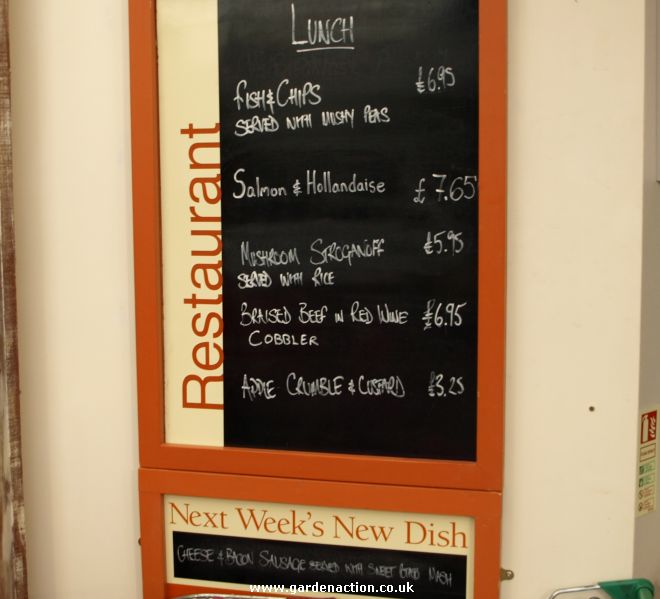 LUNCH
FISH & CHIPS £6.95
SERVED WITH MUSHY PEAS
Salmon & Hollandaise £7.65
MUSHROOM STROGANOFF £5.95
SERVED WITH RICE
BRAISED BEEF IN RED WINE £6.95
COBBLER
APPLE CRUMBLE & CUSTARD £3.25
Restaurant
Next Week's New Dish
CHEESE & BACON SAUSAGE SERVED WITH SWEET MASH
www.gardenaction.co.uk